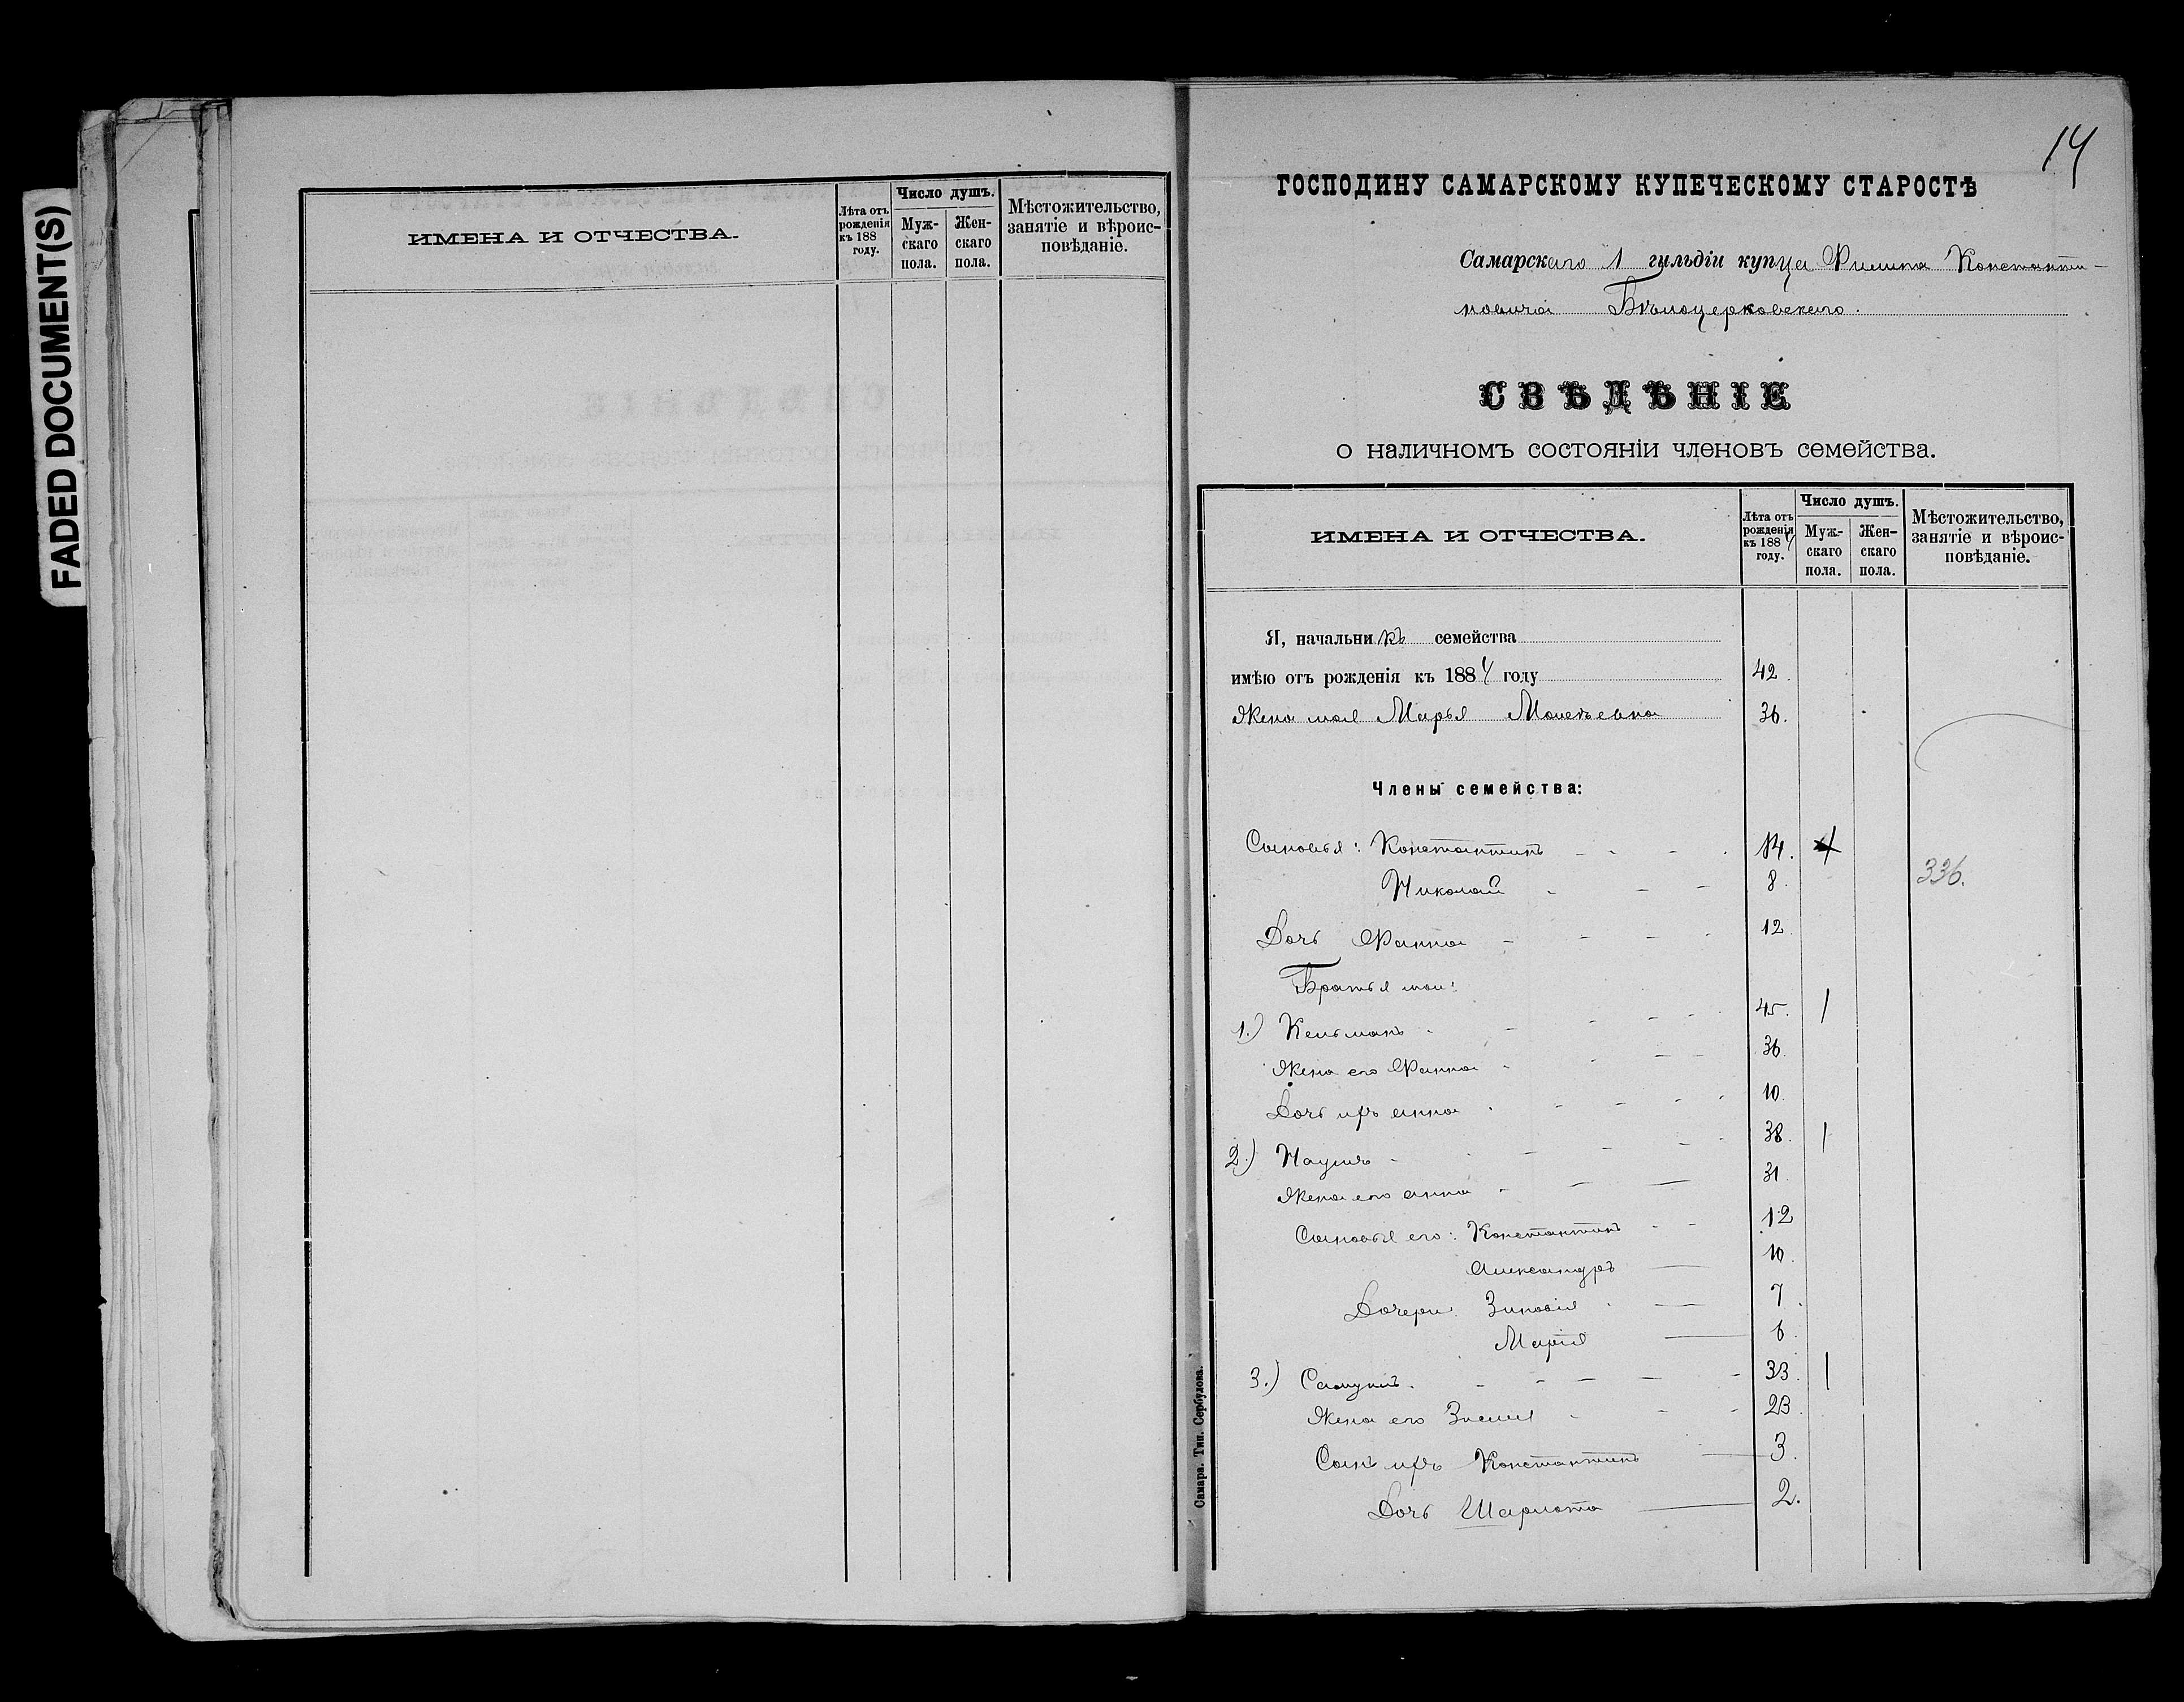 FADED DOCUMENT(S)
ИМЕНА И ОТЧЕСТВА.
Лѣта отъ рожденія къ 188 году.
Число душъ.
Мужскаго пола.
Женскаго пола.
Мѣстожительство, занятіе и вѣроисповѣданіе.
14
ГОСПОДИНУ САМАРСКОМУ КУПЕЧЕСКОМУ СТАРОСТѢ
Самарскаго 1 гильдіи купца Филипа Константи-
новича Бѣлоцерковскаго.
СВѢДѢНІЕ
о наличномъ состояніи членовъ семейства.
ИМЕНА И ОТЧЕСТВА.
Лѣта отъ рожденія къ 1884 году.
Число душъ.
Мужскаго пола.
Женскаго пола.
Мѣстожительство, занятіе и вѣроисповѣданіе.
Я, начальникъ семейства
имѣю отъ рожденія къ 1884 году 42.
Жена моя Марья 36.
Члены семейства:
Сыновья: Константинъ - - - 14.
Николай - - - 8.
336.
Дочь Фанна - - - 12
Братья мои:
1.) Кельманъ - - - 45. 1
Жена его Фанна - - - 36.
Дочь ихъ Анна - - - 10.
2.) Наумъ - - - 38. 1
Жена его Анна - - - 31.
Сыновья его: Константинъ - - 12
Александръ — 10.
Дочери: Зиновія — 7.
Марія — 6.
3.) Самуилъ. - - - 33. 1
Жена его - - - 23.
Сынъ ихъ Константинъ — 3.
Дочь Шарлота — 2.
Самара. Тип. Сербулова.